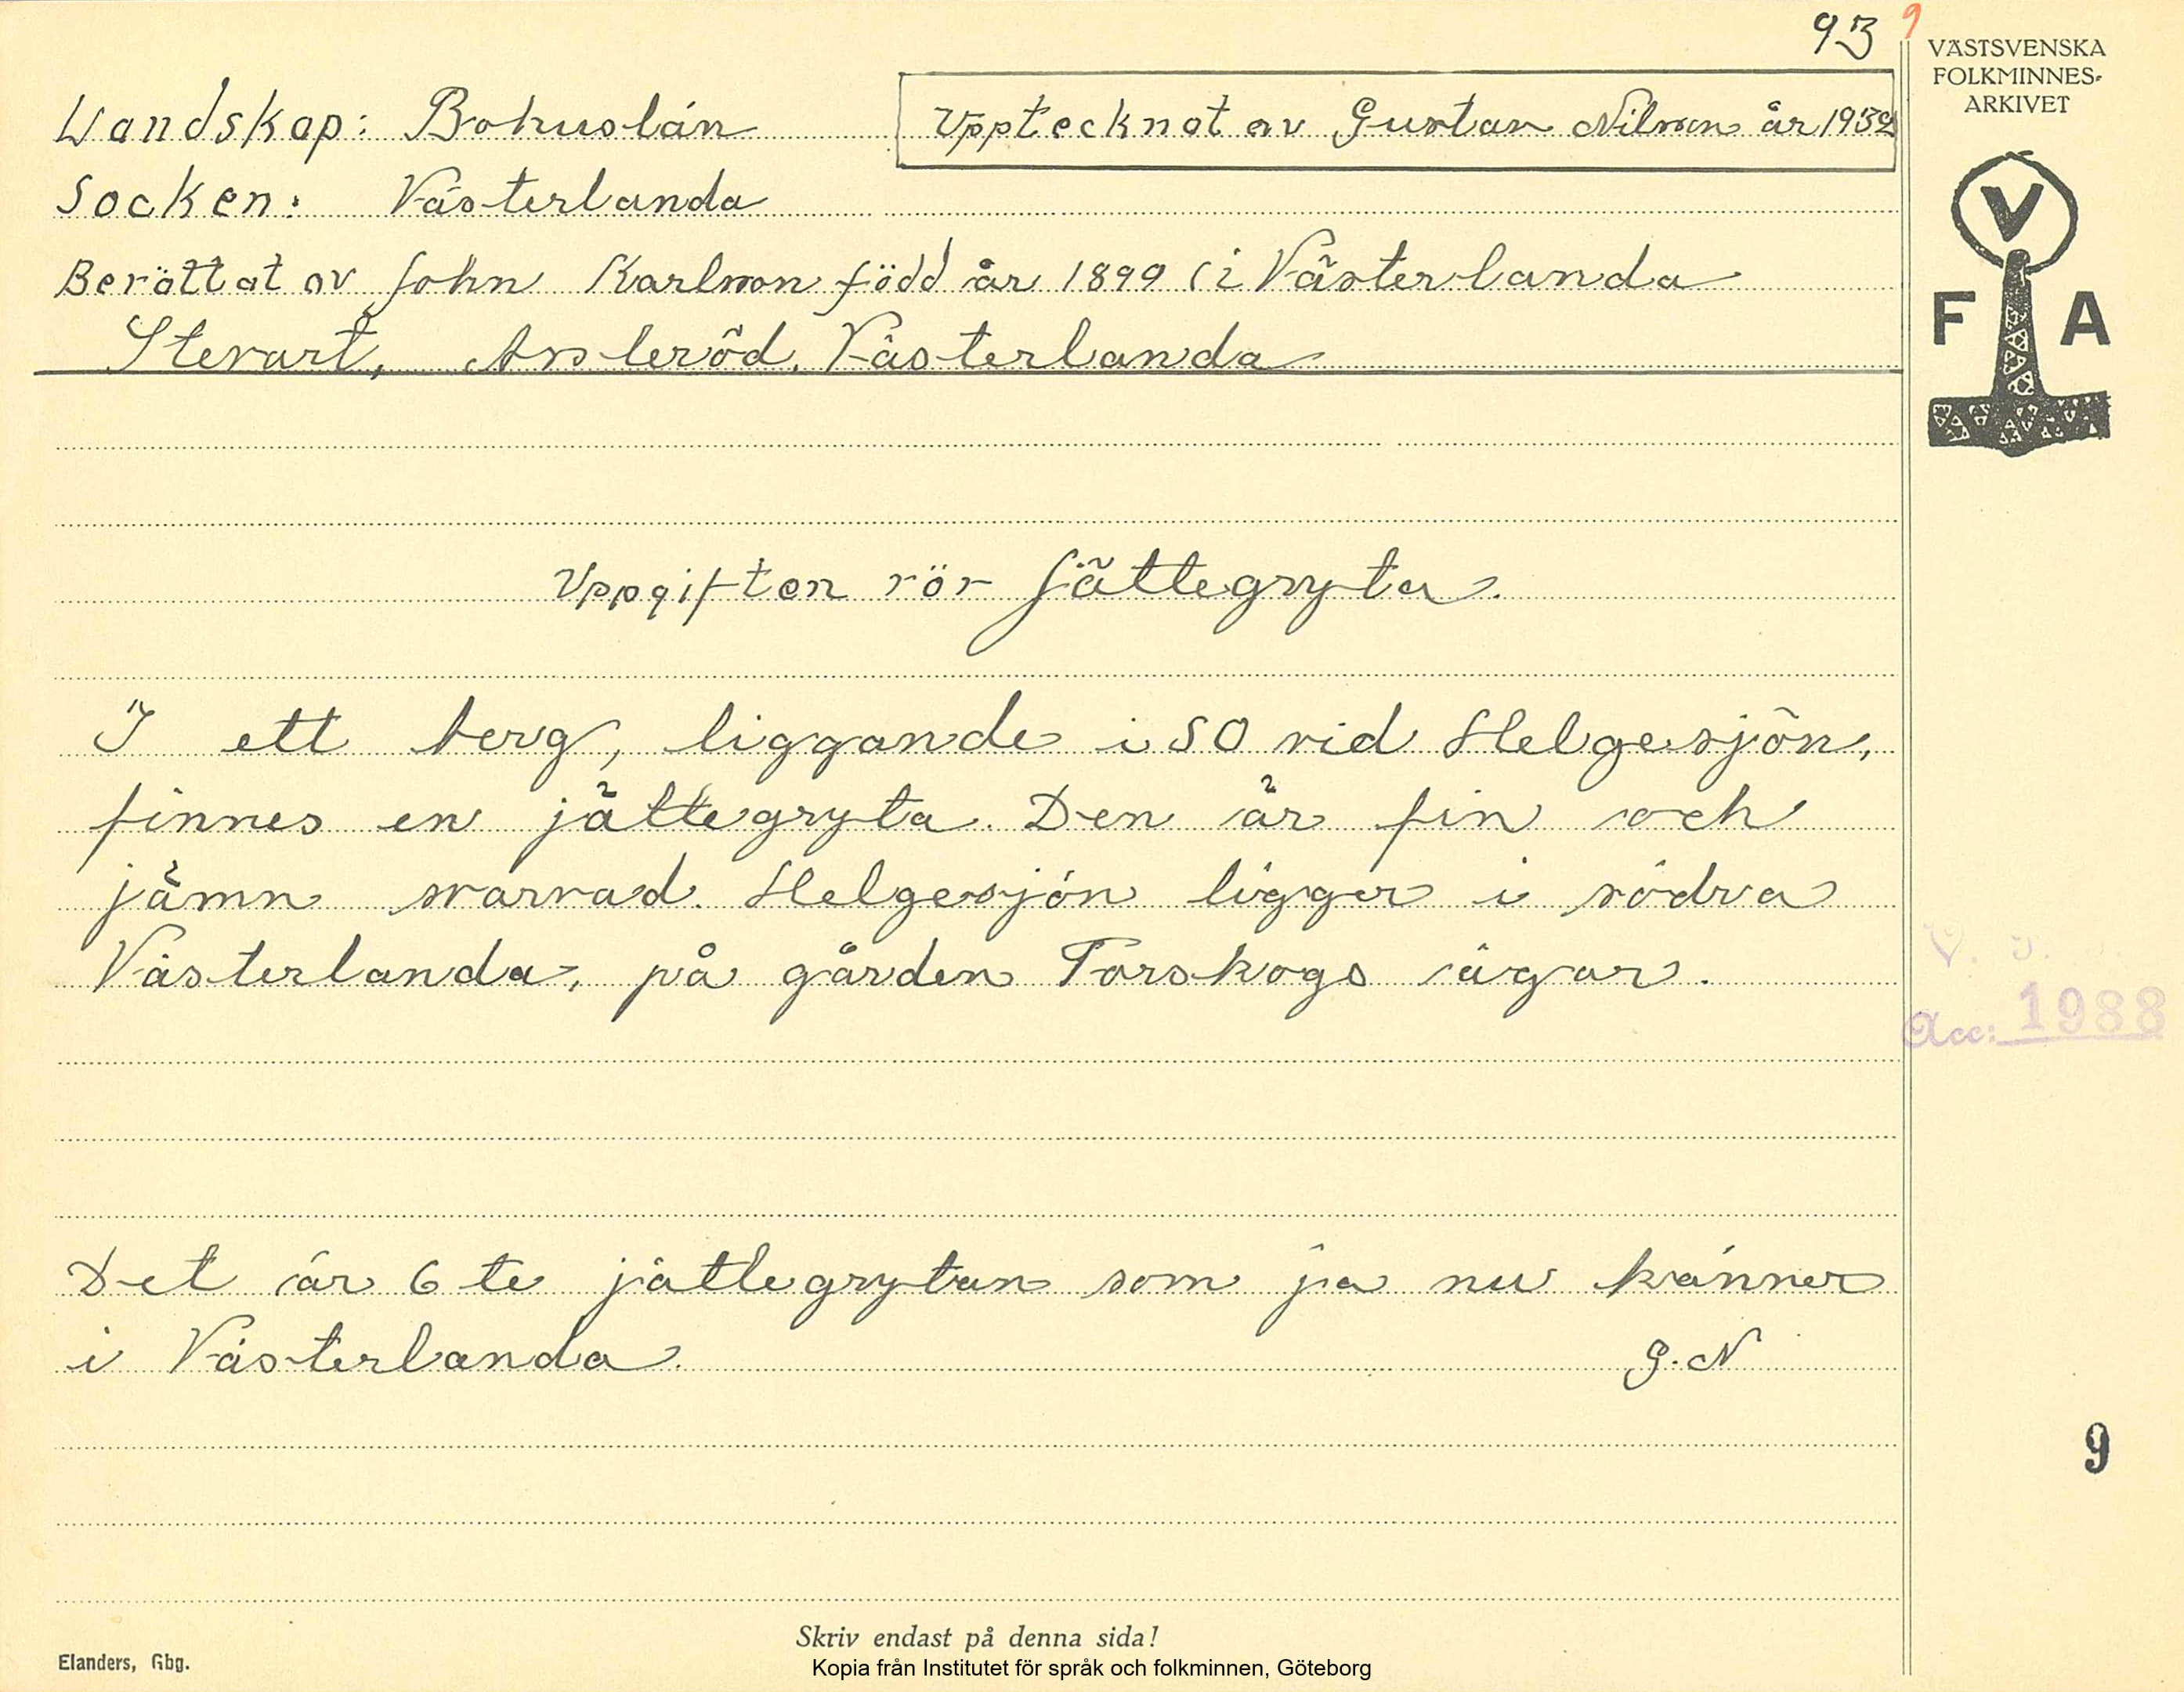 93
9
VÄSTSVENSKA
FOLKMINNES-
ARKIVET
Landskap: Bohuslän
Upptecknat av Gustav Nilsson år 1932
Socken: Västerlanda
Berättat av John Karlsson född år 1899 i Västerlanda
V
F A
Stenart, Assleröd, Västerlanda
Uppgiften rör Jättegryta.
I ett berg, liggande i SO vid Helgesjön,
finnes en jättegryta. Den är fin och
jämn svarvad. Helgesjön ligger i södra
Västerlanda, på gården Torskogs ägor.
V. J.
Acc: 1988
Det är 6 te jättegrytan som ja nu känner
i Västerlanda.
G. N
9
Skriv endast på denna sida!
Elanders, Gbg.
Kopia från Institutet för språk och folkminnen, Göteborg